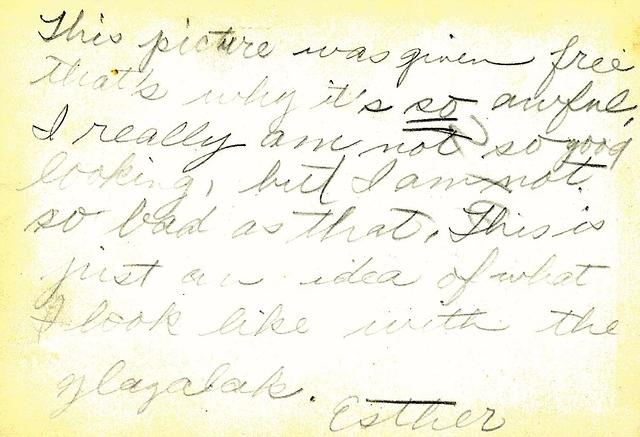 This picture was given free
that's why it's so awful,
I really am not so good
looking, but I am not
so bad as that. This is
just an idea of what
I look like with the
glazalak.
Esther